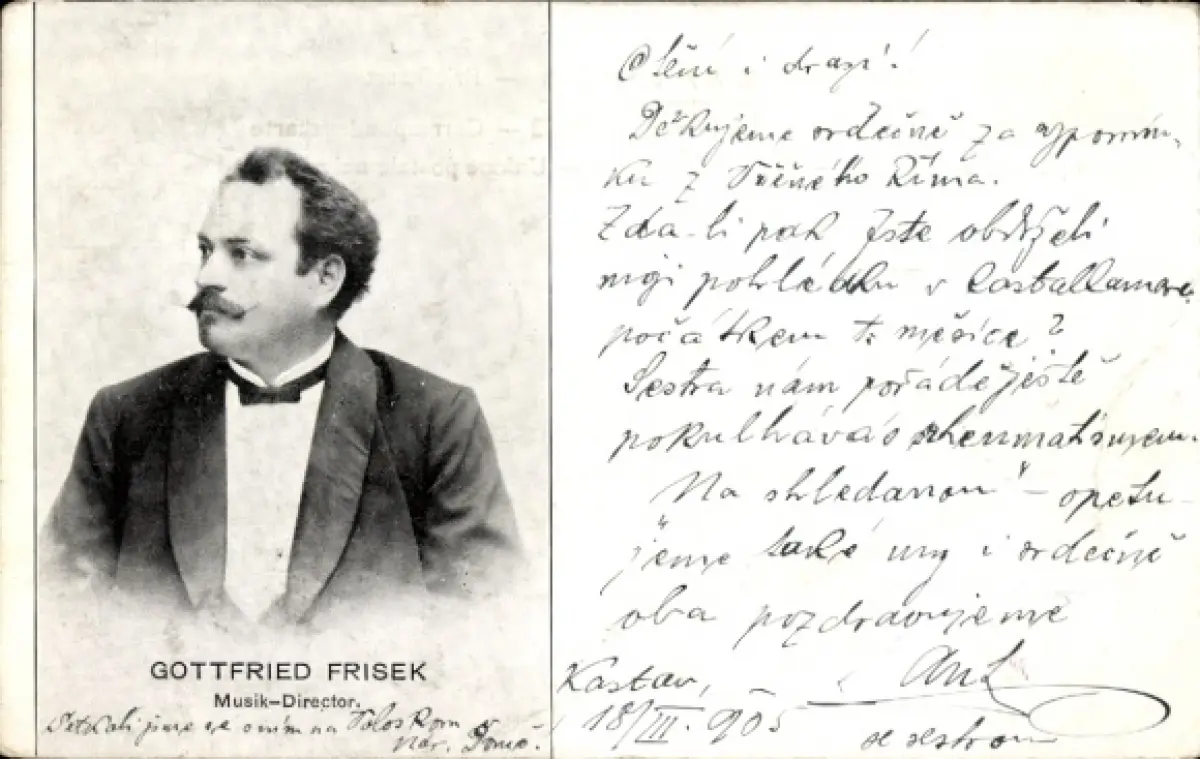 GOTTFRIED FRISEK
Musik-Director.
Setkali jsme se s ním na Voloskom v
Nár. Domě.
Ctění i drazí!
Děkujeme srdečně za vzpomín-
ku z Věčného Říma.
Zda-li pak Jste obdrželi
moji pohlédku v Castellamare
počátkem t. měsíce?
Sestra nám pořáde ještě
pokulhává s rheumatismem.
"Na shledanou" - opětu-
jeme také my i srdečně
oba pozdravujeme
Kastav,
18/III. 905
se sestrou